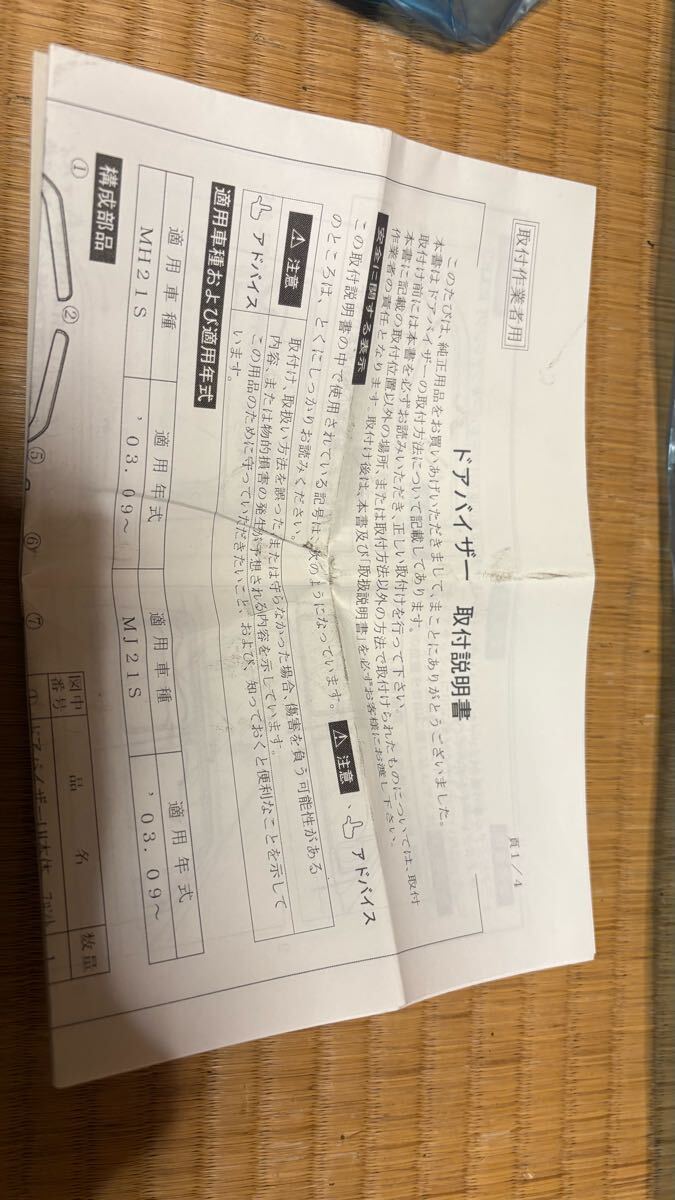 取付作業者用
頁1/4
ドアバイザー 取付説明書
このたびは、純正用品をお買いあげいただきまして、まことにありがとうございました。
本書はドアバイザーの取付方法について記載してあります。
取付け前には本書を必ずお読みいただき、正しい取付けを行って下さい。
本書に記載の取付位置以外の場所、または取付方法以外の方法で取付けられたものについては、取付
作業者の責任となります。取付け後は、本書及び「取扱説明書」を必ずお客様にお渡し下さい。
安全に関する表示
この取付説明書の中で使用されている記号は、次のようになっています。 ⚠ 注意 、 アドバイス
のところは、とくにしっかりお読みください。
⚠ 注意 取付け、取扱い方法を誤った、または守らなかった場合、傷害を負う可能性がある
内容、または物的損害の発生が予想される内容を示しています。
アドバイス この用品のために守っていただきたいこと、および、知っておくと便利なことを示して
います。
適用車種および適用年式
適用車種 適用年式 適用車種 適用年式
MH21S '03.09～ MJ21S '03.09～
構成部品
① ② ⑤ ⑥ ⑦
図中番号 品名 数量